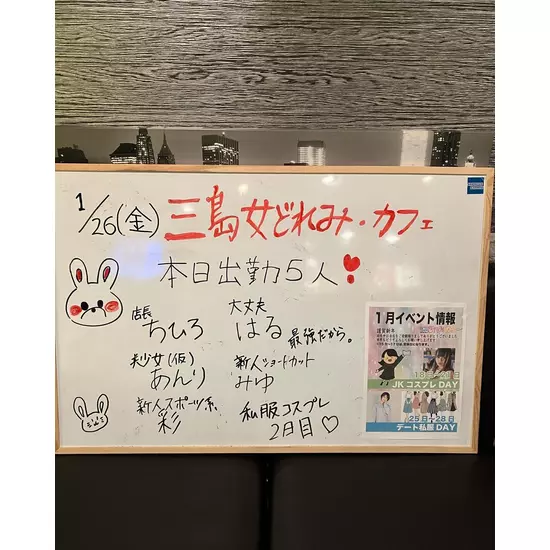 1/26(金) 三島女どれみ・カフェ
本日出勤5人❣
店長
ちひろ
大丈夫
はる 最強だから。
あんり
新人ショートカット
みゆ
新人スポーツ系
彩
私服コスプレ
2日目♡
1月イベント情報
謹賀新年
JKコスプレDAY
25日~28日
デート私服DAY